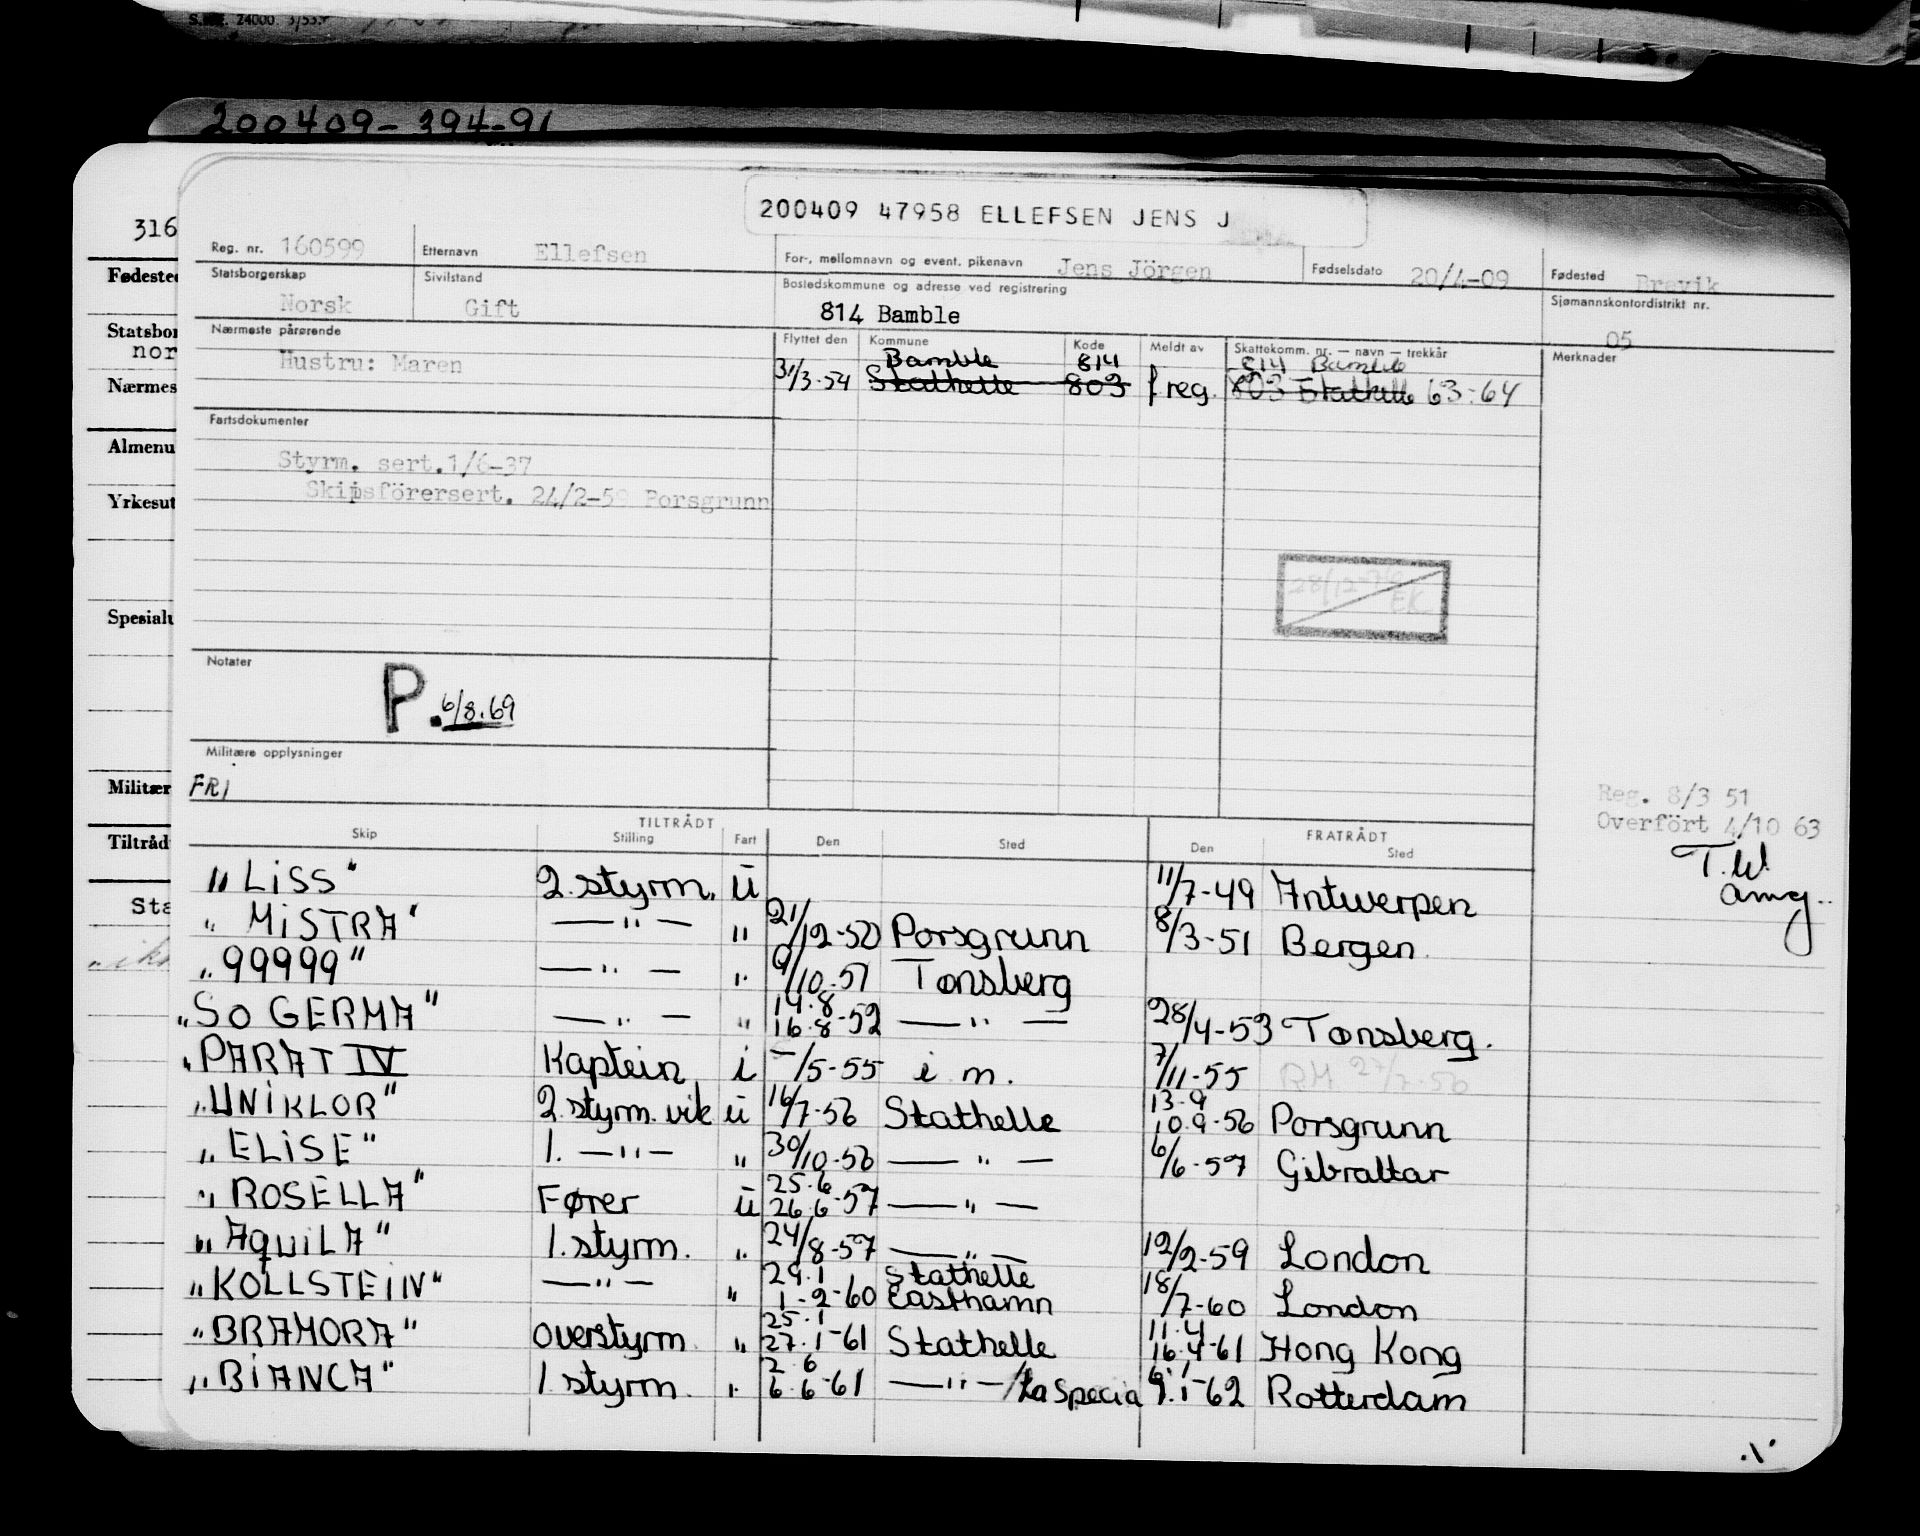 S.&S. 24000. 3/53.
200409-394-91
200409 47958 ELLEFSEN JENS J
316
Reg. nr. 160599 Etternavn Ellefsen For-, mellomnavn og event. pikenavn Jens Jörgen Fødselsdato 20/4-09 Fødested Brevik
Fødested
Statsborgerskap Norsk Sivilstand Gift Bostedskommune og adresse ved registrering 814 Bamble Sjømannskontordistrikt nr. 05
Statsbor
nor
Nærmeste pårørende Flyttet den Kommune Kode Meldt av Skattekomm. nr. — navn — trekkår Merknader
Hustru: Maren Bamble 814 814 Bamble
Nærmes
31/3-54 Stathelle 803 f reg. 803 Stathelle 63-64
Fartsdokumenter
Almenu
Styrm. sert.1/6-37
Skipsförersert. 24/2-59 Porsgrunn
Yrkesut
28/12-76
EK
Spesialu
Notater
P. 6/8.69
Militære opplysninger
Militær
FRI
Reg. 8/3 51
Overfört 4/10 63
T.W.
amg..
TILTRÅDT FRATRÅDT
Skip Stilling Fart Den Sted Den Sted
Tiltråd
"LISS" 2. styrm. u 11/7-49 Antwerpen
Sta
"MISTRA" —"— " 21/12-50 Porsgrunn 8/3-51 Bergen
"99999" —"— " 9/10-51 Tønsberg
"SO GERMA" —"— " 14.8 16.8-52 —"— 28/4-53 Tønsberg.
"PARAT IV Kaptein i -/5-55 i m. 7/11-55 RM 27/7-56
"UNIKLOR" 2. styrm. vik u 16/7-56 Stathelle 13-9 10.9-56 Porsgrunn
"ELISE" 1. —"— " 30/10-56 —"— 6/6-57 Gibraltar
"ROSELLA" Fører u 25.6 26.6-57 —"—
"AQUILA" 1. styrm. " 24/8-57 —"— 12/2-59 London
"KOLLSTEIN" —"— " 29.1 1-2-60 Stathelle Easthamn 18/7-60 London
"BRAMORA" Overstyrm. " 25.1 27.1-61 Stathelle 11.4 16.4-61 Hong Kong
"BIANCA" 1. styrm. " 2.6 6.6-61 —"—/La Specia 6.1 9.1-62 Rotterdam